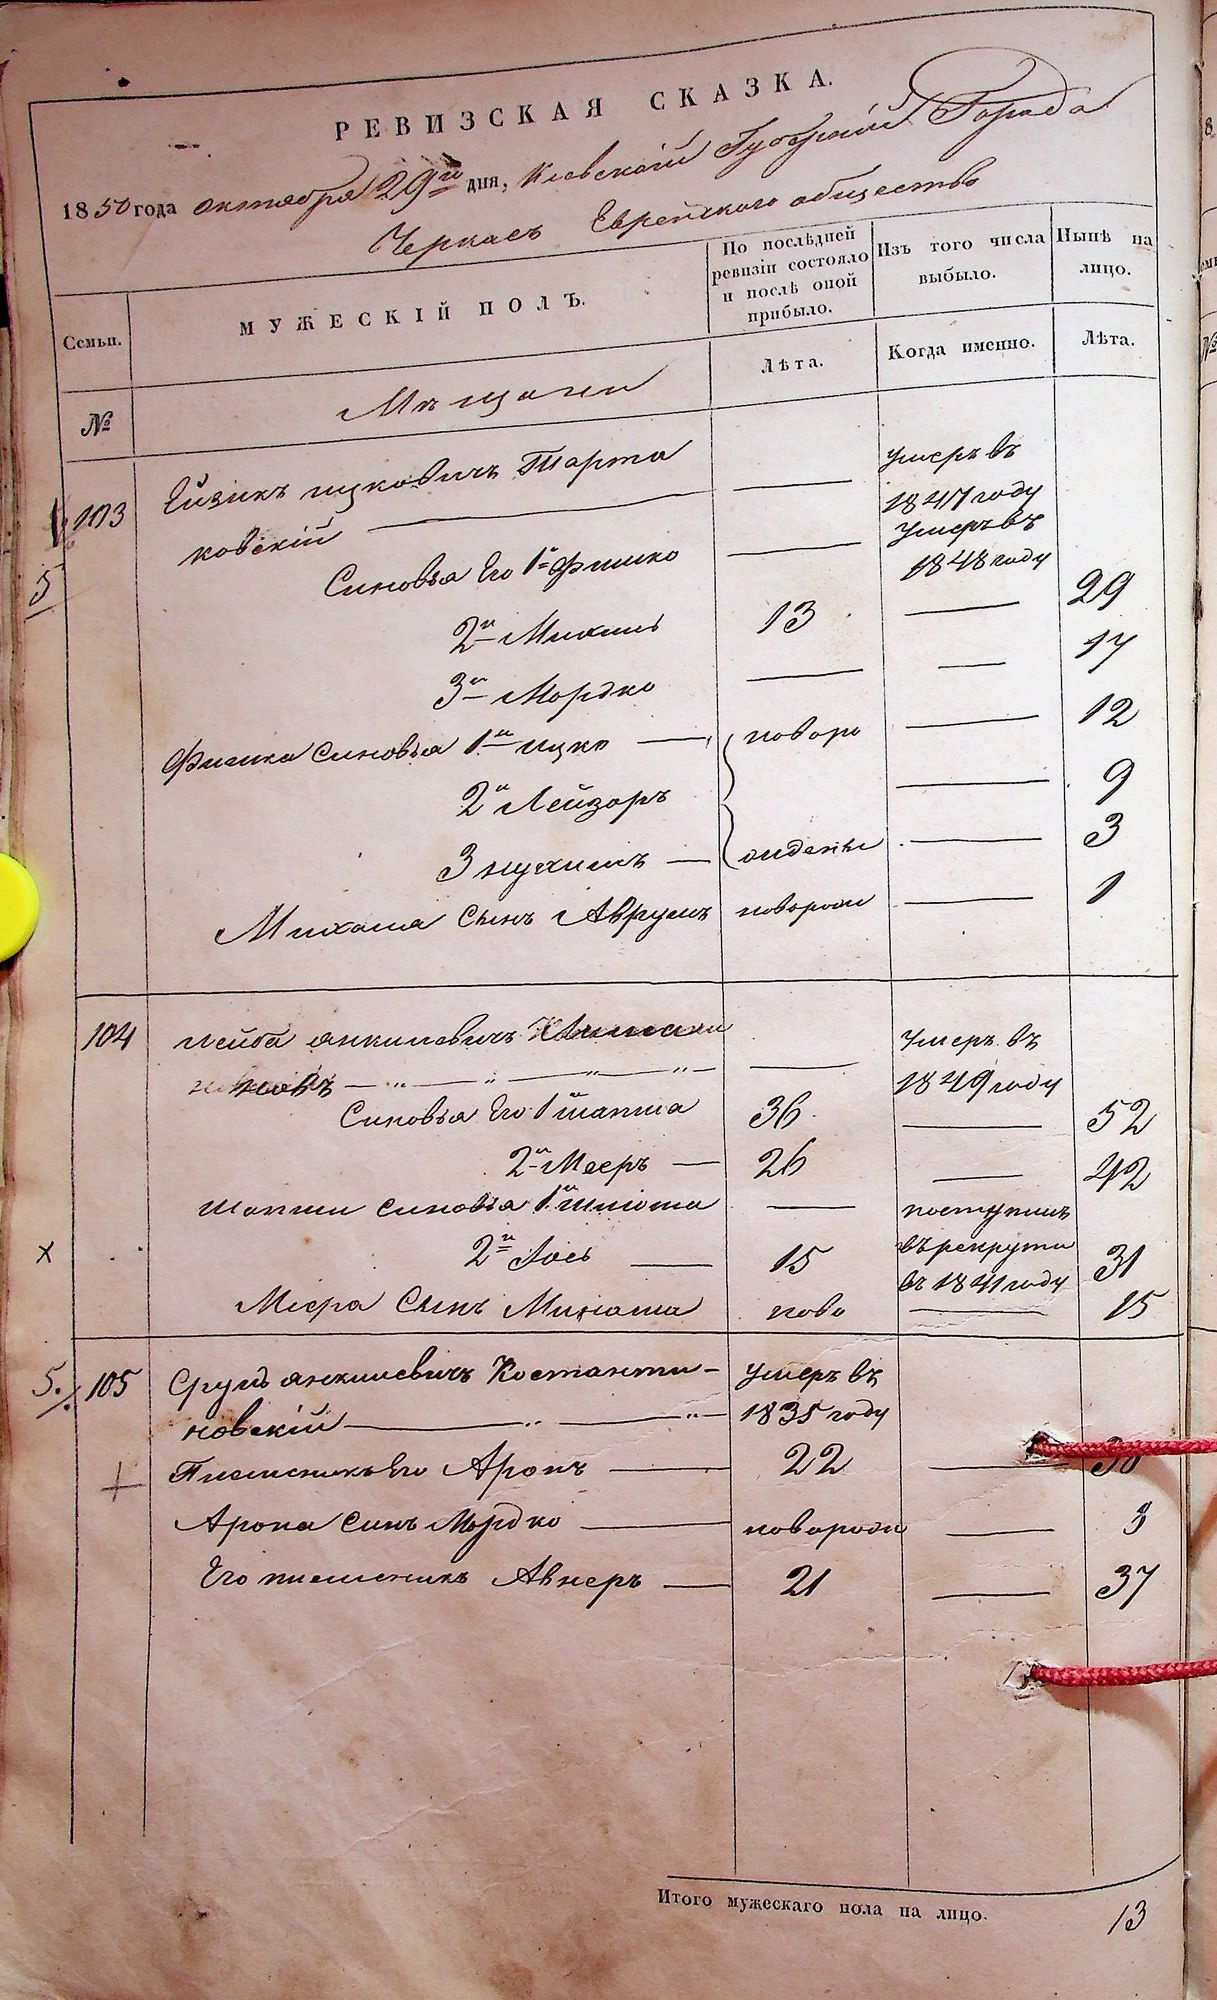 РЕВИЗСКАЯ СКАЗКА.
1850 года октября 29го дня, Киевской Губерніи Города
Черкасъ Еврейского общества
Семьи.
МУЖЕСКІЙ ПОЛЪ.
По послѣдней ревизіи состояло и послѣ оной прибыло.
Изъ того числа выбыло.
Нынѣ на лицо.
Лѣта.
Когда именно.
Лѣта.
№
Мѣщани
103 Ейзикъ ицковичъ Тарта
ковскій — — умеръ въ 1847 году
Синовья Его 1й Фишко — умеръ въ 1848 году
5
2й Михиль 13 — 29
3й Мордко — — 17
Фишка Синовья 1й ицко — новоро — 12
2й Лейзоръ — 9
3 нухимъ — жденые — 3
Михиля Сынъ Аврумъ новорож — 1
104 Лейба янкилевичъ
новъ — — умеръ въ 1849 году
Синовья Его 1 Шапша 36 — 52
2й Мееръ — 26 — 42
Шапши Синовья 1й Шліома — поступилъ
x 2й Лось — 15 въ рекруты въ 1841 году 31
Меера Сынъ Минаша ново — 15
5. 105 Срулъ янкилевичъ Костанти-
новскій — умеръ въ 1835 году
+ Племеникъ Его Аронъ — 22 — 38
Арона Синъ Мордко — новорож — 3
Его племеникъ Авнеръ — 21 — 37
Итого мужескаго пола на лицо. 13
8
№